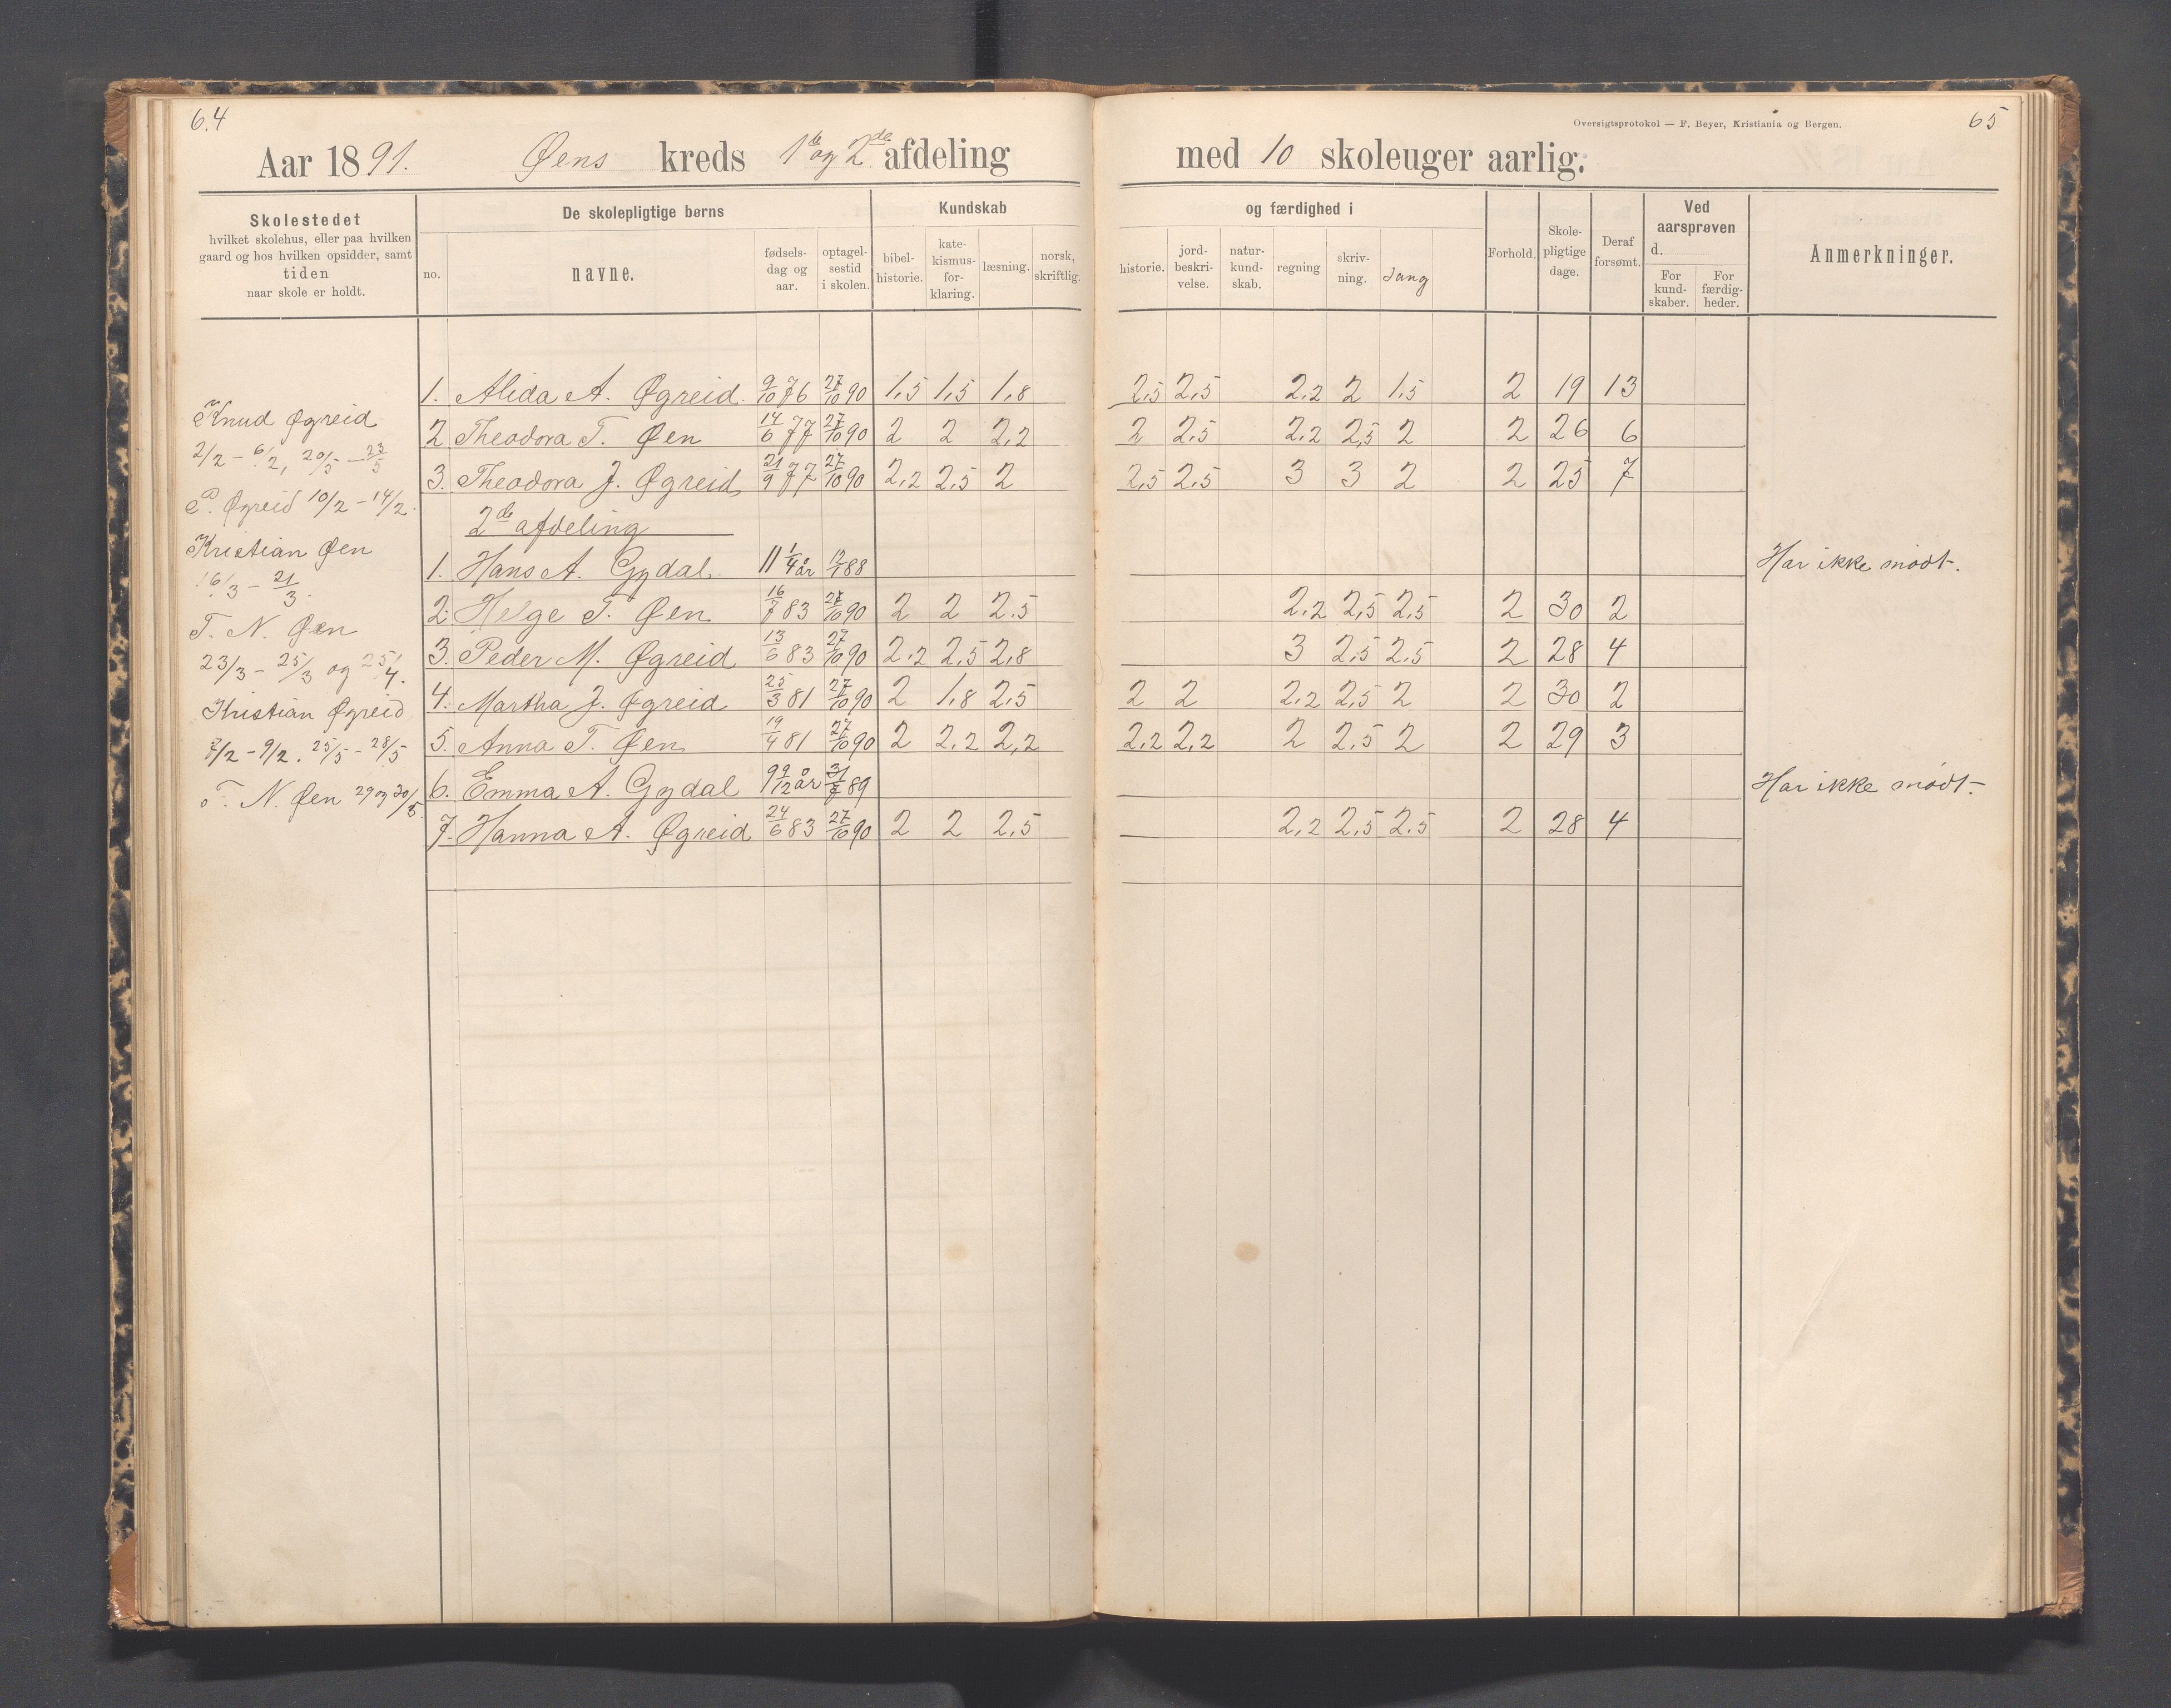 64
Aar 1891. Øens kreds 1ste og 2de afdeling
med 10 skoleuger aarlig.
Oversigtsprotokol — F. Beyer, Kristiania og Bergen.
65
Skolestedet
hvilket skolehus, eller paa hvilken
gaard og hos hvilken opsidder, samt
tiden
naar skole er holdt.
De skolepligtige børns
no.
navne.
fødsels-
dag og
aar.
optagel-
sestid
i skolen.
Kundskab
bibel-
historie.
kate-
kismus-
for-
klaring.
læsning.
norsk,
skriftlig.
og færdighed i
historie.
jord-
beskri-
velse.
natur-
kund-
skab.
regning
skriv-
ning.
Sang
Forhold.
Skole-
pligtige
dage.
Deraf
forsømt.
Ved
aarsprøven
d.
For
kund-
skaber.
For
færdig-
heder.
Anmerkninger.
Knud Øgreid
2/2 – 6/2, 20/5 – 23/5
P. Øgreid 10/2 – 14/2.
Kristian Øen
16/3 – 21/3.
T. N. Øen
23/3 – 25/3 og 25/4.
Kristian Øgreid
7/2 – 9/2. 25/5 – 28/5
T. N. Øen 29 og 30/5.
1. Alida A. Øgreid. 9/10 76 27/10 90 1,5 1,5 1,8 2,5 2,5 2,2 2 1,5 2 19 13
2 Theodora T. Øen 14/6 77 27/10 90 2 2 2,2 2 2,5 2,2 2,5 2 2 26 6
3. Theodora J. Øgreid 21/9 77 27/10 90 2,2 2,5 2 2,5 2,5 3 3 2 2 25 7
2de afdeling
1. Hans A. Gydal. 11 1/4 år 12/1 88 Har ikke mødt.
2. Helge T. Øen 16/7 83 27/10 90 2 2 2.5 2,2 2,5 2,5 2 30 2
3. Peder M. Øgreid 13/6 83 27/10 90 2,2 2,5 2,8 3 2,5 2,5 2 28 4
4. Martha J. Øgreid 25/3 81 27/10 90 2 1,8 2,5 2 2 2,2 2,5 2 2 30 2
5. Anna T. Øen 19/4 81 27/10 90 2 2,2 2,2 2,2 2,2 2 2,5 2 2 29 3
6. Emma A. Gydal 9 9/12 år 31/7 89 Har ikke mødt.
7. Hanna A. Øgreid 24/6 83 27/10 90 2 2 2,5 2,2 2,5 2.5 2 28 4